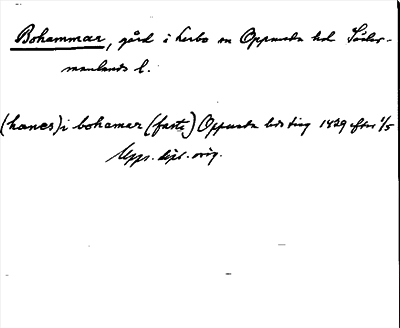 Bohammar, gård i Lerbo sn Oppunda hd Söder-
manlands l.
(hanes) i bohamar (faste) Oppunda hds ting 1429 efter 1/5
Upps. dipl. orig.